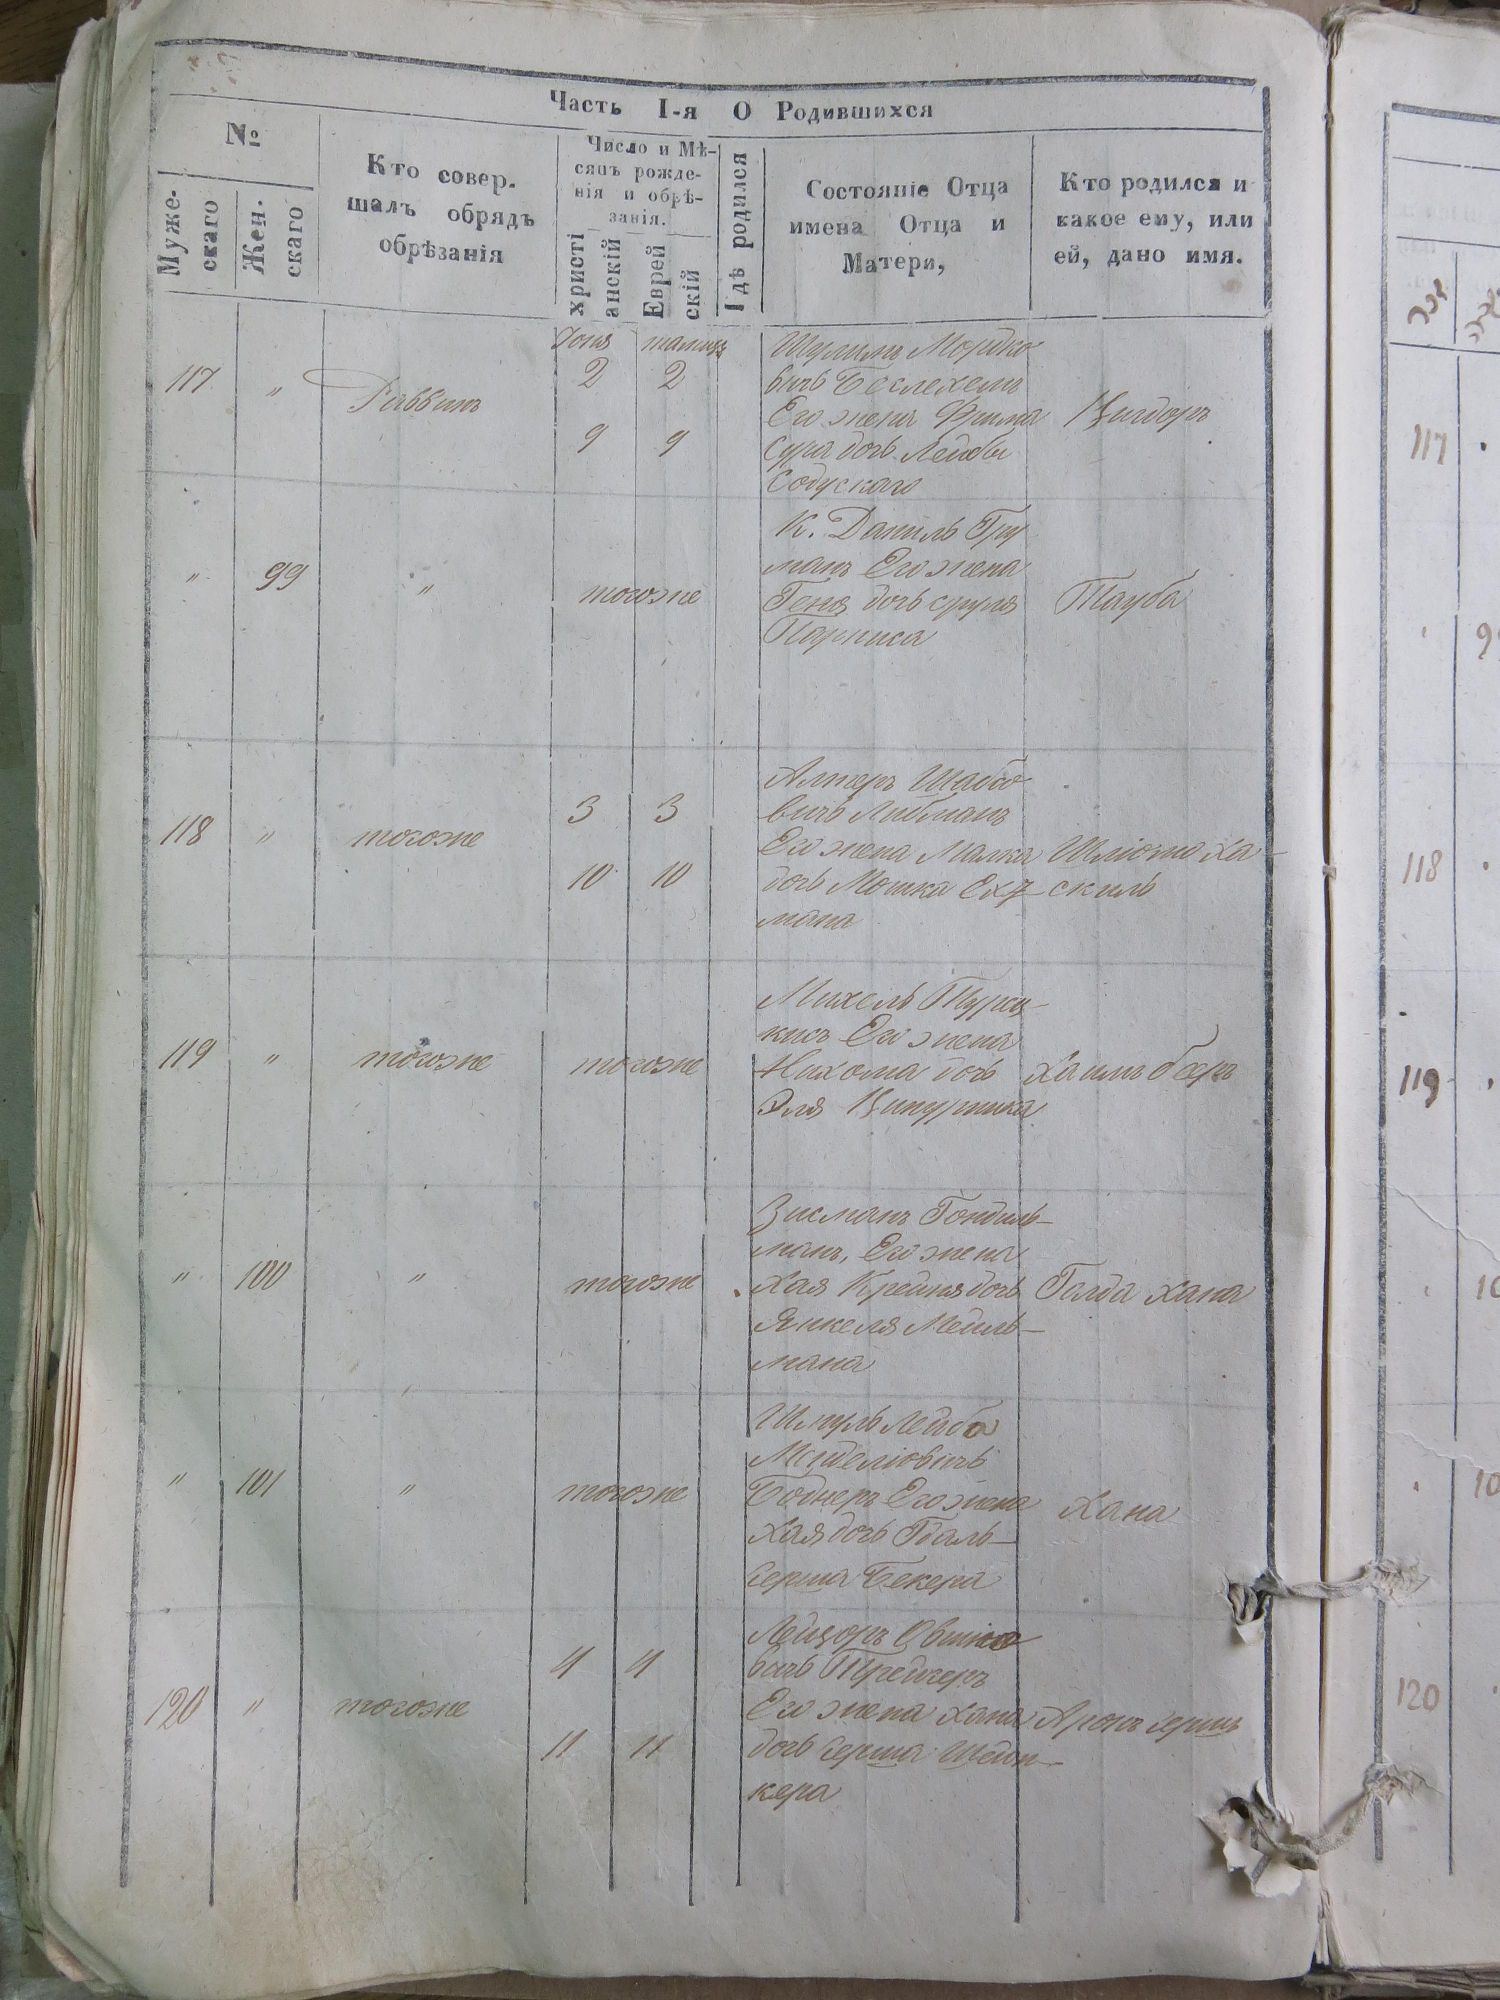 Часть I-я О Родившихся
№
Муже-
скаго
Жен.
скаго
Кто совер.
шалъ обрядъ
обрѣзанія
Число и Мѣ-
сяцъ рожде-
нія и обрѣ-
занія.
Христі
анскій
Еврей
скій
Гдѣ родился
Состояніе Отца
имена Отца и
Матери,
Кто родился и
какое ему, или
ей, дано имя.
117 " Раввинъ
2 2
9 9
Шулимъ Мошко
вичъ Беслехемъ
Его жена Фрима
Сура дочь Лейбы
Содускаго
" 99 " тогоже
К. Даниль Гру
манъ Его жена
Геня дочь сруля
Парниса
Тауба
118 " тогоже
3 3
10 10
Алтеръ Шабсо
вичъ Либманъ
Его жена Малка
дочь Мошка
мана
Шліомо Ха-
скиль
119 " тогоже тогоже
Михель
Его жена
Нихома дочь
Эля
Хаимъ беръ
" 100 " тогоже
Зисманъ Гондиль-
манъ, Его жена
Хая Крейня дочь
Янкеля Мейль-
мана
Голда Хана
" 101 " тогоже
Шмуль Лейба
Менделіовичъ
Боднеръ Его жена
Хая дочь Гдаль-
Герша Бекера
Хана
120 " тогоже
4 4
11 11
Лейзоръ
вичъ Трейгеръ
Его жена Хана
дочь Герша Шейн-
кера
Аронъ Гершъ
117
118
119
120